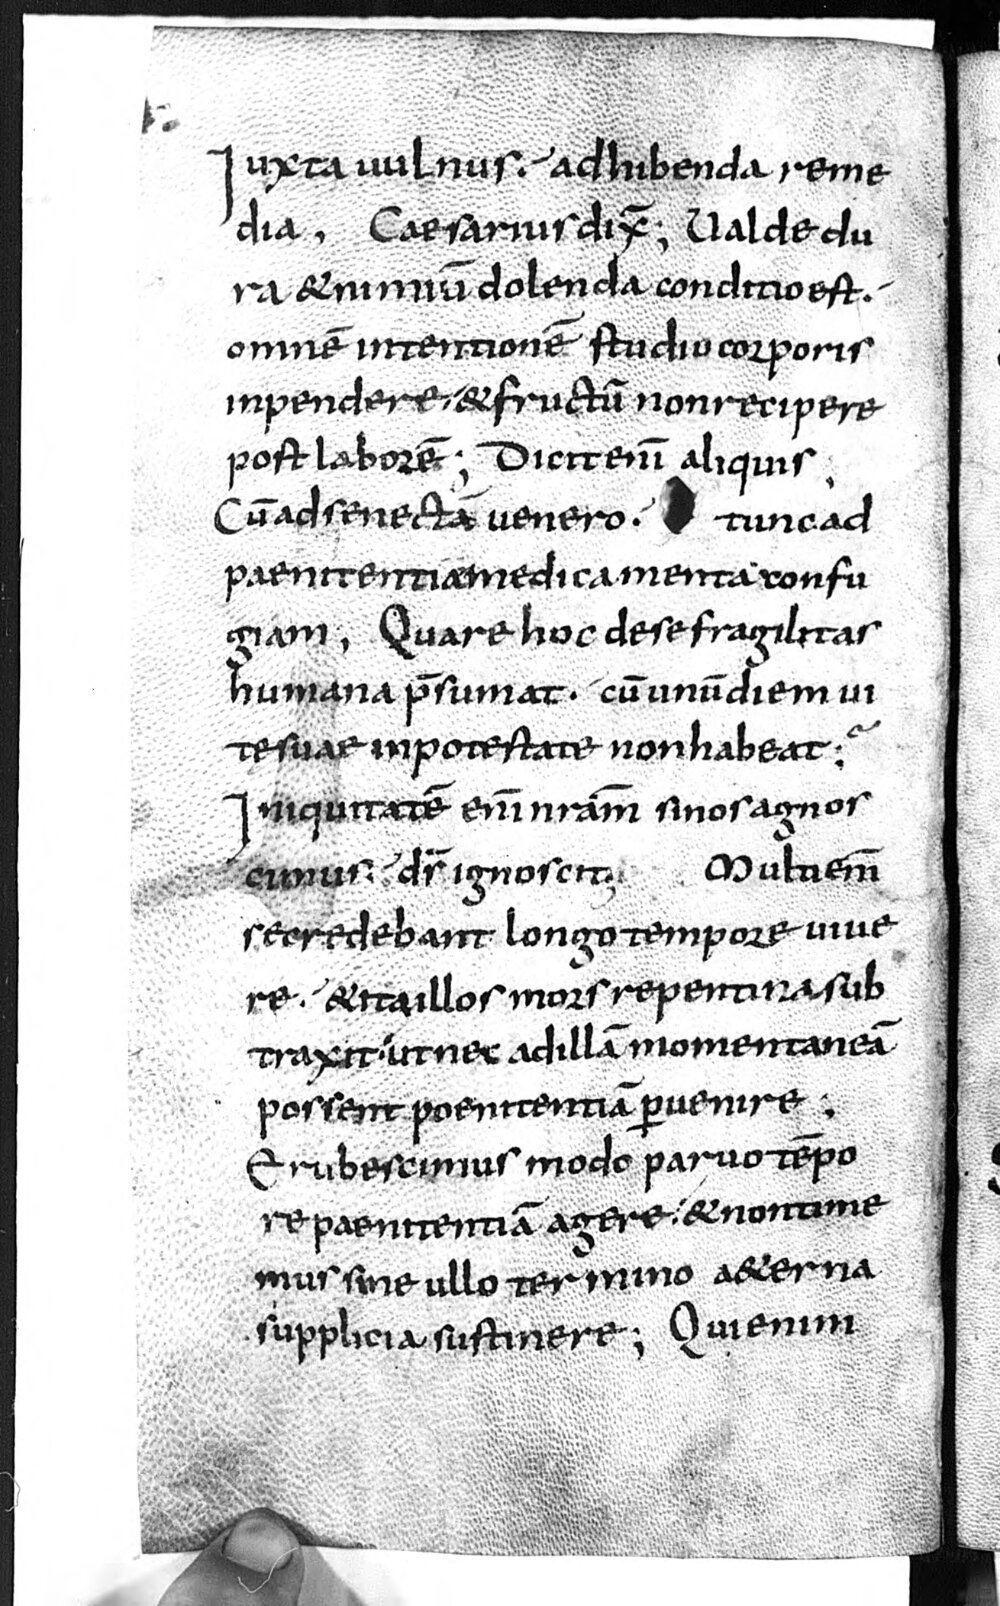 Iuxta uulnus. adhibenda reme
dia, Caesarius dix̄; Ualde du
ra & nimiū dolenda conditio est.
omnē intentionē studio corporis
inpendere. & fructū non recipere
post laborē; Dicit enī aliquis,
Cū ad senectā uenero. tunc ad
paenitentiae medicamenta confu
giam, Quare hoc de se fragilitas
humana p̄sumat. cū unū diem ui
te suae in potestate non habeat;
Iniquitatē enī nrām si nos agnos
cimus. ds̄ ignoscit; Multi enī
se credebant longo tempore uiue
re. & ita illos mors repentina sub
traxit. ut nec ad illā momentaneā
possent poenitentiā ꝑuenire;
Erubescimus modo paruo tēpo
re paenitentiā agere. & non time
mus sine ullo termino a&erna
supplicia sustinere; Qui enim